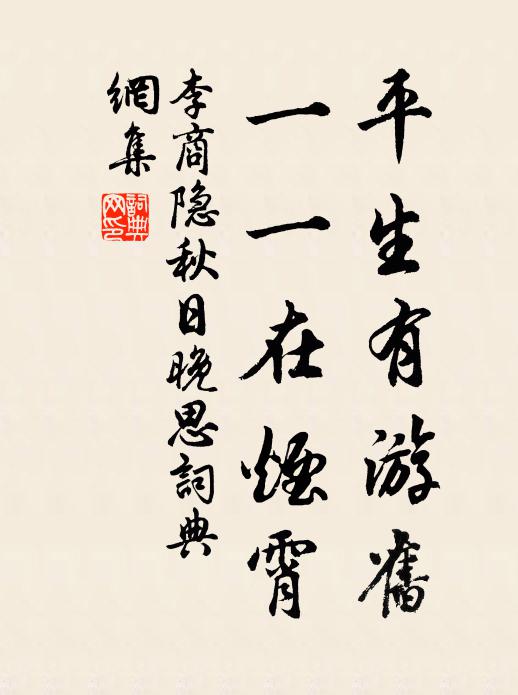 平生有游舊
一一在煙霄
李商隐秋日晚思詞典
網集
詞典
网印